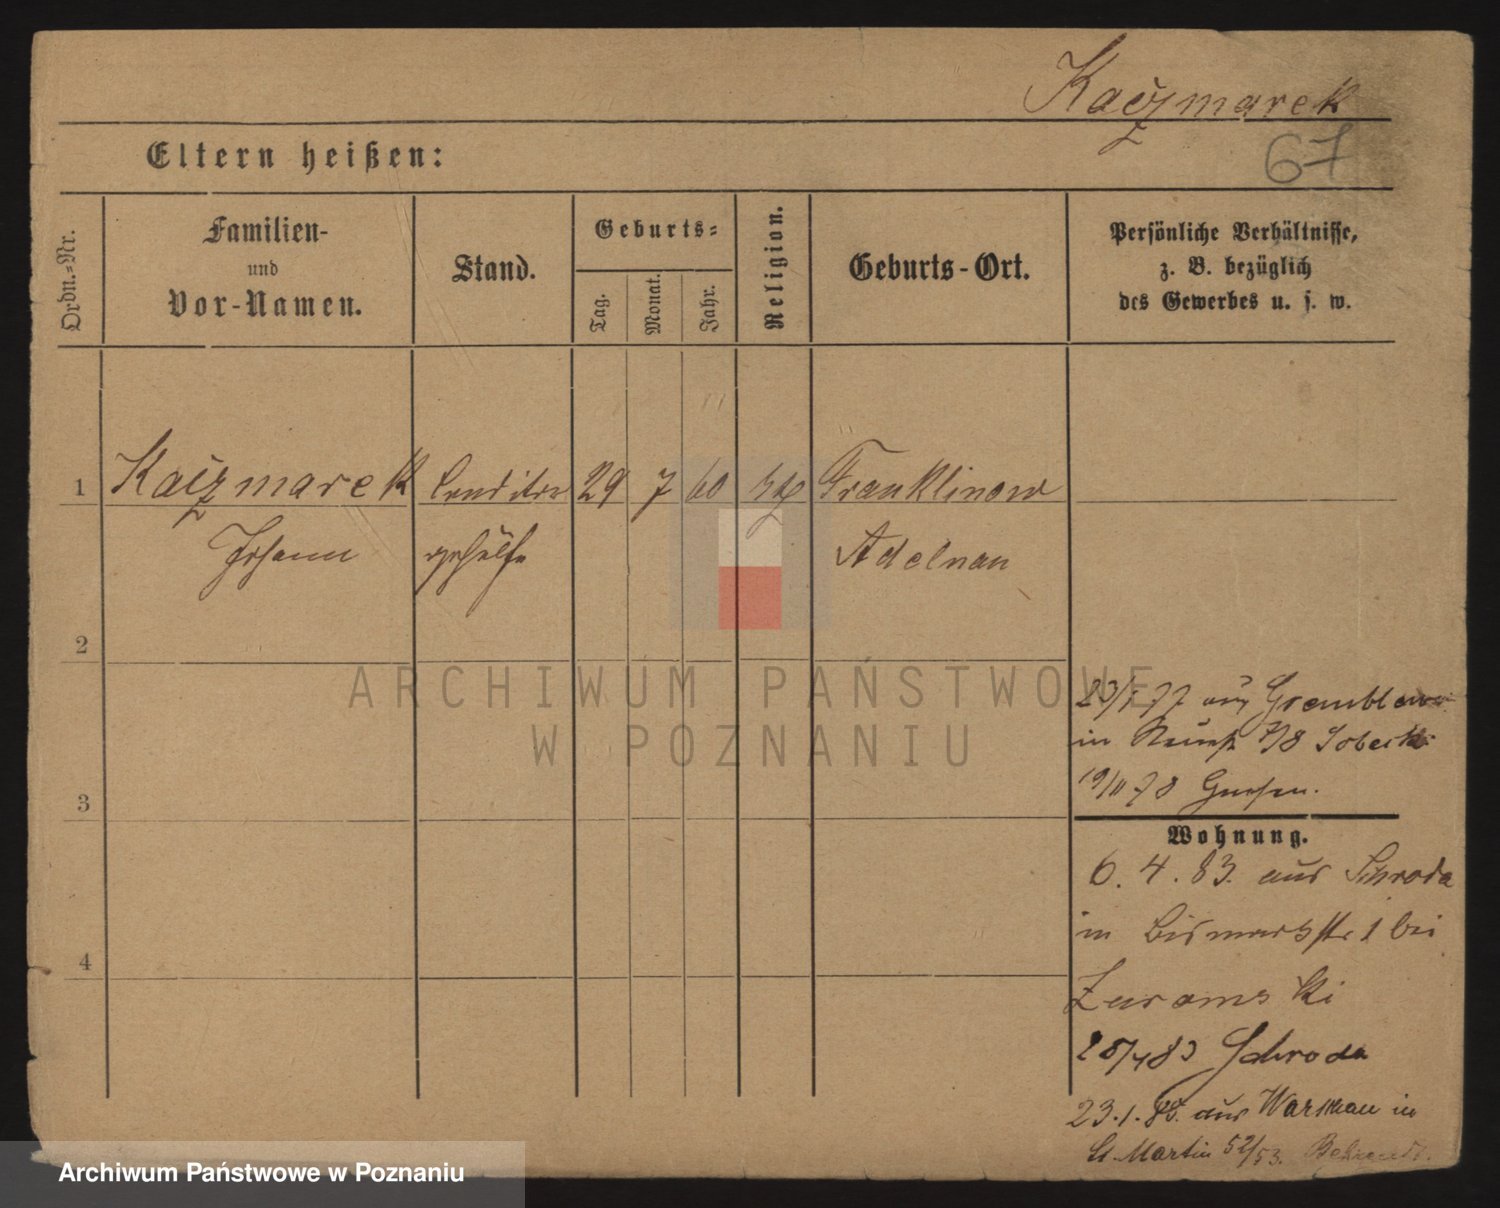 Kaczmarek
67
Eltern heißen:
Ordn.=Nr.
Familien-
und
Vor-Namen.
Stand.
Geburts=
Tag.
Monat.
Jahr.
Religion.
Geburts-Ort.
Persönliche Verhältnisse,
z. B. bezüglich
des Gewerbes u. s. w.
1 Kaczmarek Conditor 29 7 60 Franklinow
Johann gehülfe Adelnau
2
3
4
ARCHIWUM PAŃSTWOWE
W POZNANIU
77 aus
in 7/8
19/11 78 Gnesen.
Wohnung.
6. 4. 83. aus Schroda
in Bismarkstr 1 bei
Zuromski
28/4 83 Schroda
23.1. aus Warschau in
St Martin 52/53.
Archiwum Państwowe w Poznaniu